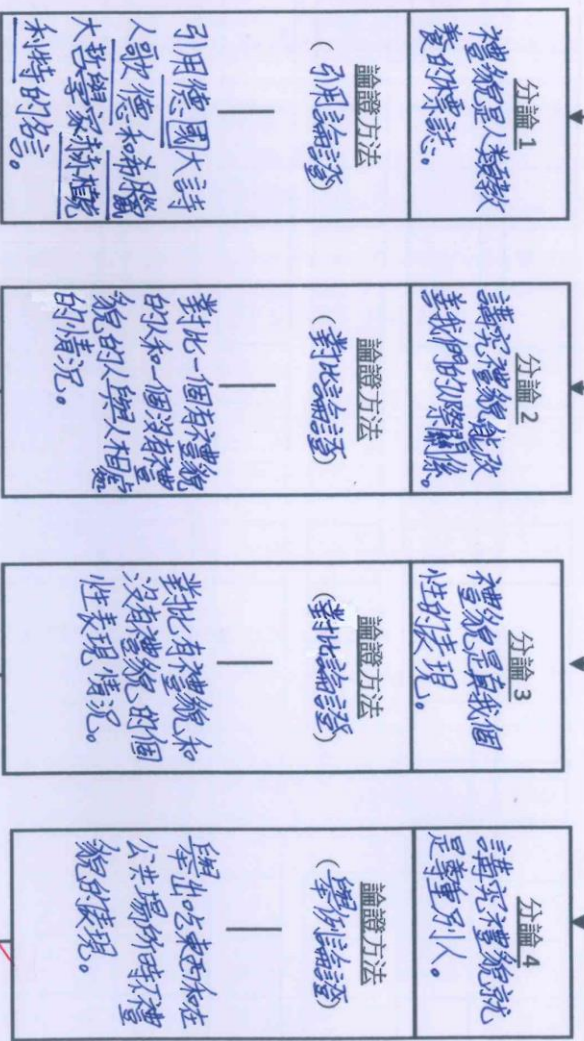 分論 1
禮貌是人類教
養的標誌。
論證方法
(引用論證)
引用德國大詩
人歌德和希臘
大哲學家赫拉克
利特的名言。
分論 2
講究禮貌能改
善我們的人際關係。
論證方法
(對比論證)
對比一個有禮貌
的人和一個沒有禮
貌的人與人相處
的情況。
分論 3
禮貌是真我個
性的表現。
論證方法
(對比論證)
對比有禮貌和
沒有禮貌的個
性表現情況。
分論 4
講究禮貌就
是尊重別人。
論證方法
(舉例論證)
舉出吃東西和在
公共場所時不禮
貌的表現。